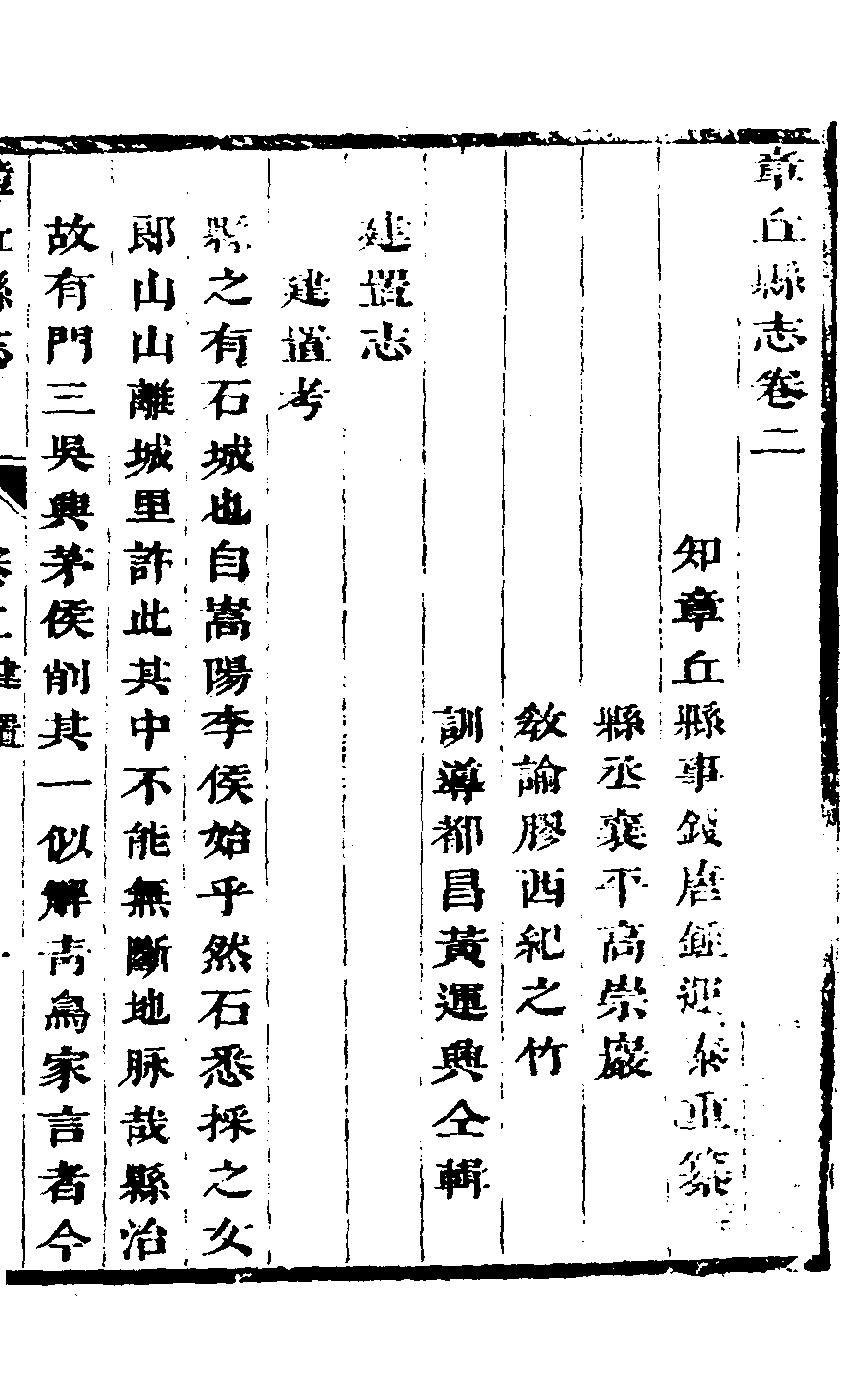 章丘縣志卷二
知章丘縣事錢唐鍾運泰重纂
縣丞襄平高崇巖
敎諭膠西紀之竹
訓導都昌黃運興仝輯
建置志
建置考
縣之有石城也自嵩陽李侯始乎然石悉採之女
郎山山離城里許此其中不能無斷地脉哉縣治
故有門三吳興茅侯削其一似解青烏家言者今
章丘縣志
卷二建置
一